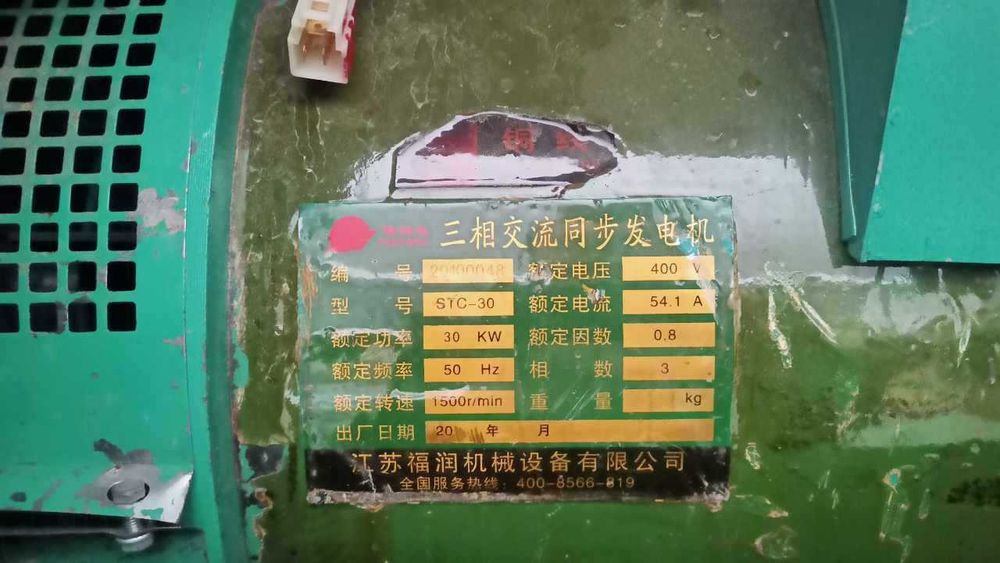 铜
三相交流同步发电机
编 号 20100048 额定电压 400 V
型 号 STC-30 额定电流 54.1 A
额定功率 30 KW 额定因数 0.8
额定频率 50 Hz 相 数 3
额定转速 1500r/min 重 量 kg
出厂日期 20 年 月
江苏福润机械设备有限公司
全国服务热线：400-8566-819